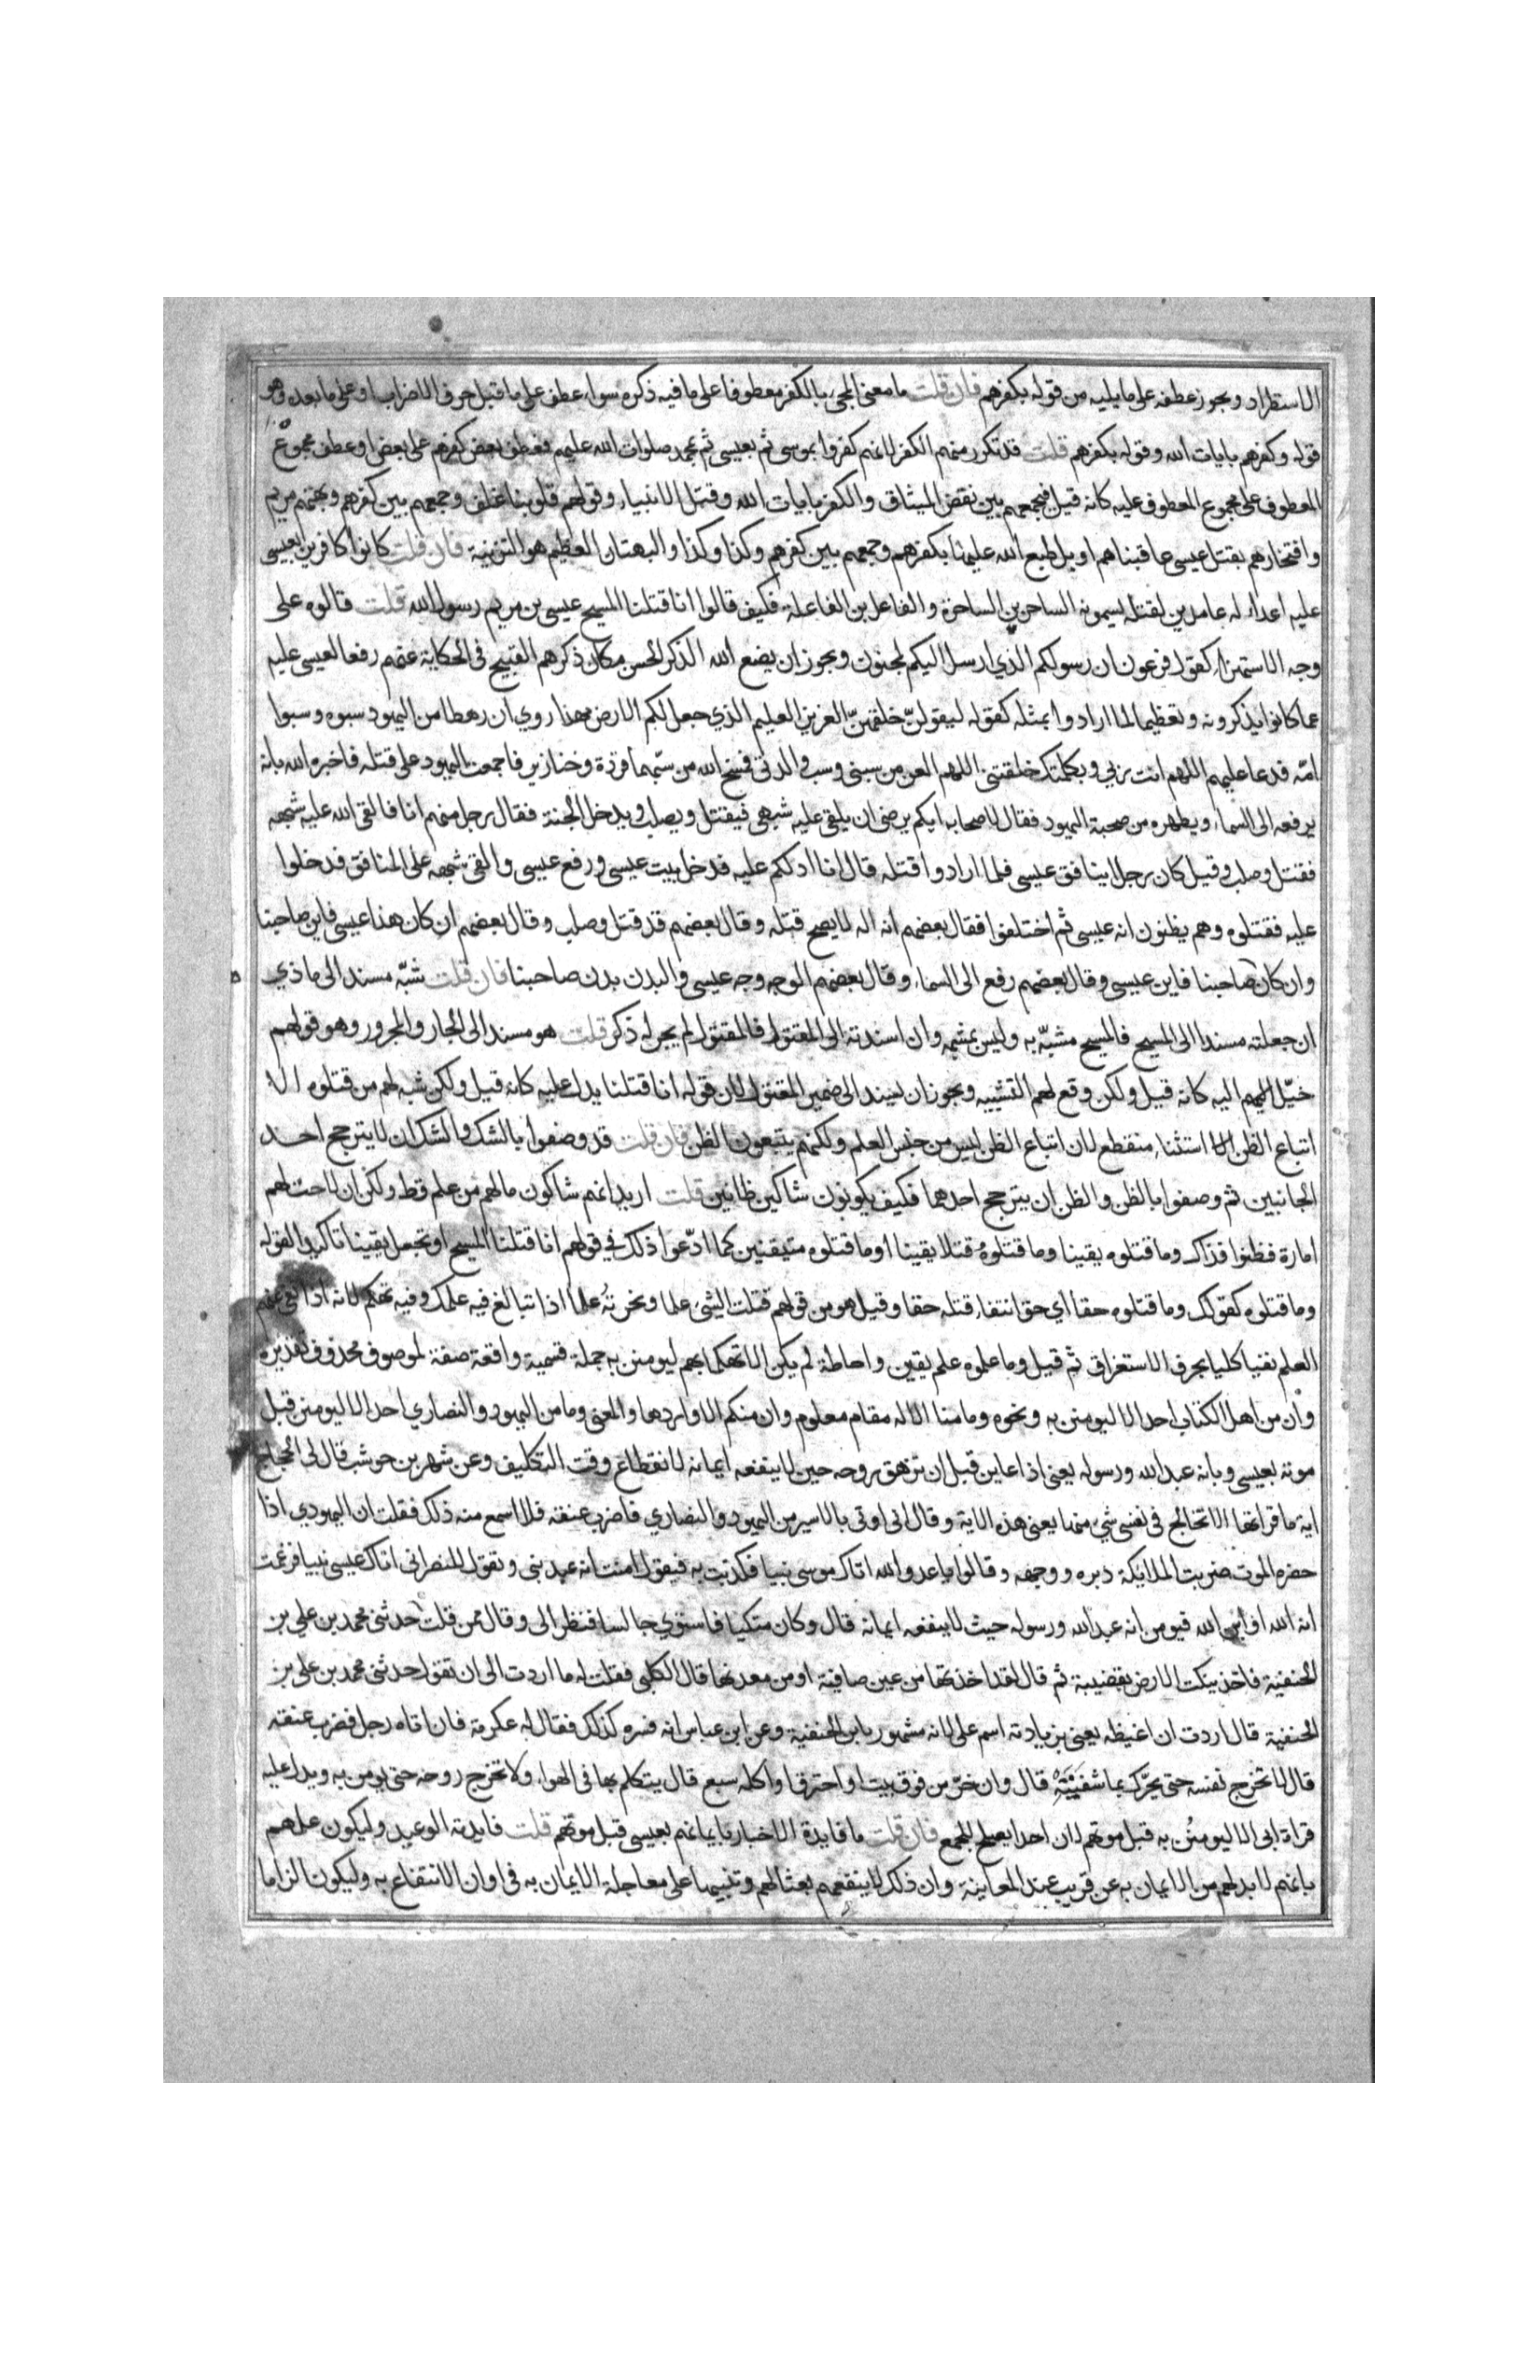 الاستطراد ويجوز عطفه على ما يليه من قوله بكفرهم فان قلت ما معنى المجيء بالكفر معطوفا على ما فيه ذكره سواء عطف على ما قبل حرف الاضراب او على ما بعده وهو
قوله وكفرهم بايات الله وقوله بكفرهم قلت قد تكرر منهم الكفر لانهم كفروا بموسى ثم بعيسى ثم بمحمد صلوات الله عليهم فعطف بعض كفرهم على بعض او عطف مجموع
المعطوف على مجموع المعطوف عليه كانه قيل فبجمعهم بين نقض الميثاق والكفر بايات الله وقتل الانبياء وقولهم قلوبنا غلف وجمعهم بين كفرهم وبهتهم مريم
وافتخارهم بقتل عيسى عاقبناهم او بل طبع الله عليها بكفرهم وجمعهم بين كفرهم وكذا وكذا والبهتان العظيم هو التزنية فان قلت كانوا كافرين بعيسى
عليم اعداء له عامدين لقتله يسمونه الساحر بن الساحرة والفاعل بن الفاعلة فكيف قالوا انا قتلنا المسيح عيسى بن مريم رسول الله قلت قالوه على
وجه الاستهزاء كقول فرعون ان رسولكم الذي ارسل اليكم لمجنون ويجوز ان يضع الله الذكر الحسن مكان ذكرهم القبيح في الحكاية عنهم رفعا لعيسى عليم
عما كانوا يذكرونه وتعظيما لما ارادوا بمثله كقوله ليقولنّ خلقهنّ العزيز العليم الذي جعل لكم الارض مهدا روي ان رهطا من اليهود سبوه وسبوا
امّه فدعا عليهم اللهم انت ربي وبكلمتك خلقتني اللهم العن من سبني وسب والدتي فمسخ الله من سبّهما قردة وخنازير فاجمعت اليهود على قتله فاخبره الله بانه
يرفعه الى السماء ويطهره من صحبة اليهود فقال لاصحابه ايكم يرضى ان يلقى عليه شبهي فيقتل ويصلب ويدخل الجنة فقال رجل منهم انا فالقى الله عليه شبهه
فقتل وصلب وقيل كان رجل ينافق عيسى فلما ارادوا قتله قال انا ادلكم عليه فدخل بيت عيسى ورفع عيسى والقى شبهه على المنافق فدخلوا
عليه فقتلوه وهم يظنون انه عيسى ثم اختلفوا فقال بعضهم انه اله لا يصح قتله وقال بعضهم قد قتل وصلب وقال بعضهم ان كان هذا عيسى فاين صاحبنا
وان كان صاحبنا فاين عيسى وقال بعضهم رفع الى السماء وقال بعضهم الوجه وجه عيسى والبدن بدن صاحبنا فان قلت شبّه مسند الى ماذي
ان جعلته مسندا الى المسيح فالمسيح مشبّه به وليس بمشبه وان اسندته الى المقتول فالمقتول لم يجر له ذكر قلت هو مسند الى الجار والمجرور وهو قولهم
خيّل اليهم اليه كانه قيل ولكن وقع لهم التشبيه ويجوز ان يسند الى ضمير المقتول لان قوله انا قتلنا يدل عليه كانه قيل ولكن شبه لهم من قتلوه الا
اتباع الظن الا استثناء منقطع لان اتباع الظن ليس من جنس العلم ولكنهم يتبعون الظن فان قلت قد وصفوا بالشك والشك ان لا يترجح احد
الجانبين ثم وصفوا بالظن والظن ان يترجح احدهما فكيف يكونون شاكين ظانين قلت اريد انهم شاكون ما لهم من علم قط ولكن ان لاحت لهم
امارة فظنوا فذاك وما قتلوه يقينا وما قتلوهُ قتلا يقينا او ما قتلوه متيقنين كما ادّعوا ذلك في قولهم انا قتلنا المسيح او تجعل يقينا تاكيدا لقوله
وما قتلوه كقولك وما قتلوه حقا اي حق انتفاء قتله حقا وقيل هو من قولهم قتلت الشيء علما ونحرتُه علما اذا تبالغ فيه علمك وفيه تهكم لانه اذا نفى عنهم
العلم نفيا كليا بحرف الاستغراق ثم قيل وما علموه علم يقين واحاطة لم يكن الا تهكما بهم ليومنن به جملة قسمية واقعة صفة لموصوف محذوف تقديره
وان من اهل الكتاب احد الا ليومنن به ونحوه وما منا الا له مقام معلوم وان منكم الا واردها والمعنى وما من اليهود والنصاري احد الا ليومنن قبل
موته بعيسى وبانه عبد الله ورسوله يعني اذا عاين قبل ان تزهق روحه حين لا ينفعه ايمانه لانقطاع وقت التكليف وعن شهر بن حوشب قال لي الحجاج
اية ما قراتها الا تخالج في نفسي شيء منها يعني هذه الاية وقال اني اوتى بالاسير من اليهود والنصاري فاضرب عنقه فلا اسمع منه ذلك فقلت ان اليهودي اذا
حضره الموت ضربت الملايكة دبره ووجهه وقالوا يا عدو الله اتاك موسى نبيا فكذبت به فيقول امنت انه عبد نبي وتقول للنصراني اتاك عيسى نبيا فزعمت
انه الله او ابن الله فيومن انه عبد الله ورسوله حيث لا ينفعه ايمانه قال وكان متكيا فاستوي جالسا فنظر الى وقال ممن قلت حدثني محمد بن علي بن
الحنفية فاخذ ينكت الارض بقضيبه ثم قال لقد اخذتها من عين صافية او من معدنها قال الكلبي فقلت له ما اردت الى ان تقول حدثني محمد بن على بن
الحنفية قال اردت ان اغيظه يعني بزيادته اسم على لانه مشهور بابن الحنفية وعن ابن عباس انه فسره كذلك فقال له عكرمة فان اتاه رجل فضرب عنقه
قال لا تخرج نفسه حتى يحرّك بها شفتيه قال وان خرّ من فوق بيت او احترق او اكله سبع قال يتكلم بها في الهواء ولا تخرج روحه حتى يومن به ويدل عليه
قراءة ابى الا ليومنُن به قبل موتهم لان احدا يصلح للجمع فان قلت ما فايدة الاخبار بايمانهم بعيسى قبل موتهم قلت فايدته الوعيد وليكون علمهم
بانهم لا بد لهم من الايمان به عن قريب عند المعاينة وان ذلك لا ينفعهم بعثا لهم وتنبيها على معاجلة الايمان به في اوان الانتفاع به وليكون الزاما